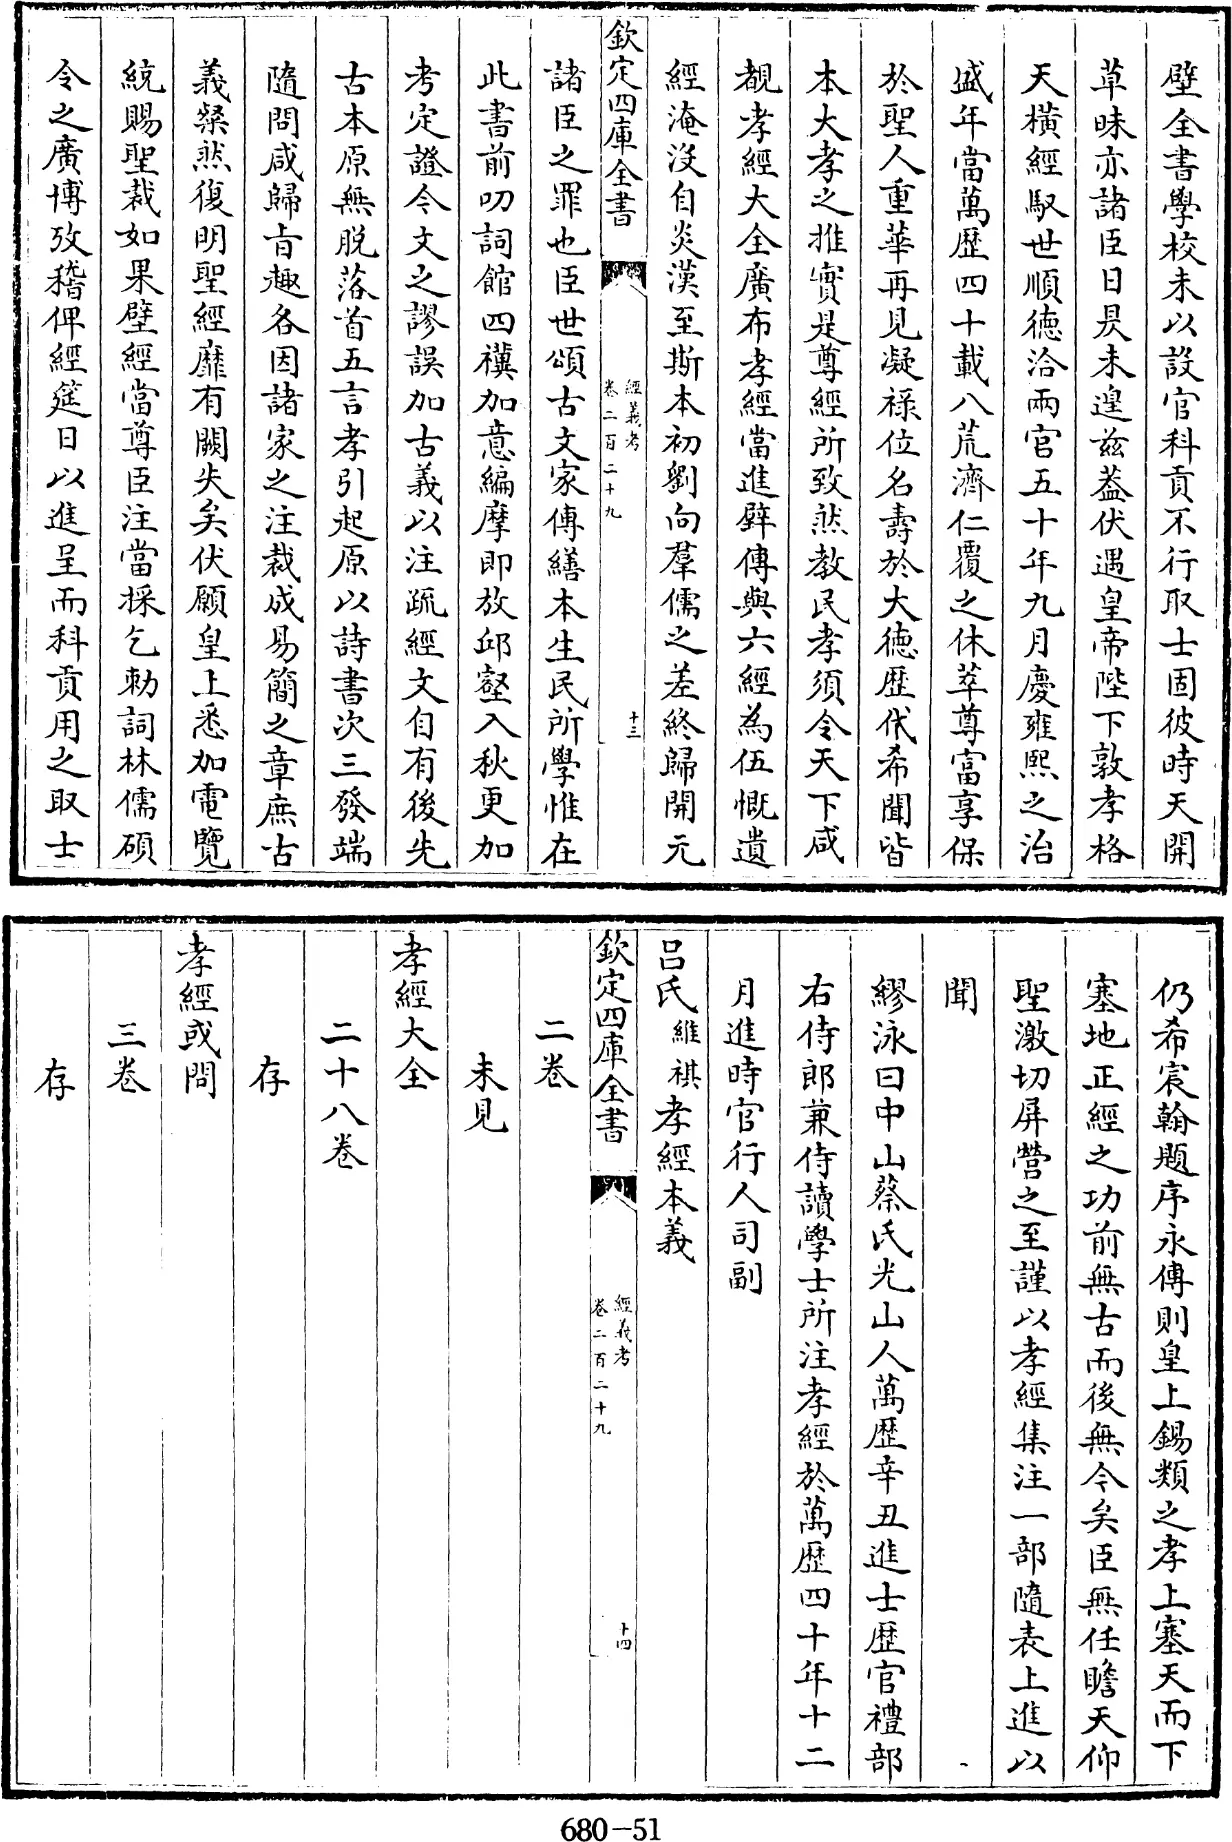 壁全書學校未以設官科貢不行取士固彼時天開
草昧亦諸臣日昃未遑茲蓋伏遇皇帝陛下敦孝格
天橫經馭世順德洽兩宮五十年九月慶雍熙之治
盛年當萬歷四十載八荒濟仁覆之休萃尊富享保
於聖人重華再見凝祿位名壽於大德歷代希聞皆
本大孝之推實是尊經所致然教民孝須令天下咸
覩孝經大全廣布孝經當進壁傳與六經為伍慨遺
經淹沒自炎漢至斯本初劉向羣儒之差終歸開元
欽定四庫全書
經義考
卷二百二十九
十三
諸臣之罪也臣世頌古文家傳繕本生民所學惟在
此書前叨詞館四禩加意編摩即放邱壑入秋更加
考定證今文之謬誤加古義以注疏經文自有後先
古本原無脫落首五言孝引起原以詩書次三發端
隨問咸歸旨趣各因諸家之注裁成易簡之章庶古
義粲然復明聖經靡有闕失矣伏願皇上悉加電覽
統賜聖裁如果壁經當尊臣注當採乞勅詞林儒碩
令之廣博攷稽俾經筵日以進呈而科貢用之取士
仍希宸翰題序永傳則皇上錫類之孝上塞天而下
塞地正經之功前無古而後無今矣臣無任瞻天仰
聖激切屏營之至謹以孝經集注一部隨表上進以
聞
繆泳曰中山蔡氏光山人萬歷辛丑進士歷官禮部
右侍郎兼侍讀學士所注孝經於萬歷四十年十二
月進時官行人司副
呂氏維祺孝經本義
欽定四庫全書
經義考
卷二百二十九
十四
二卷
未見
孝經大全
二十八卷
存
孝經或問
三卷
存
680-51